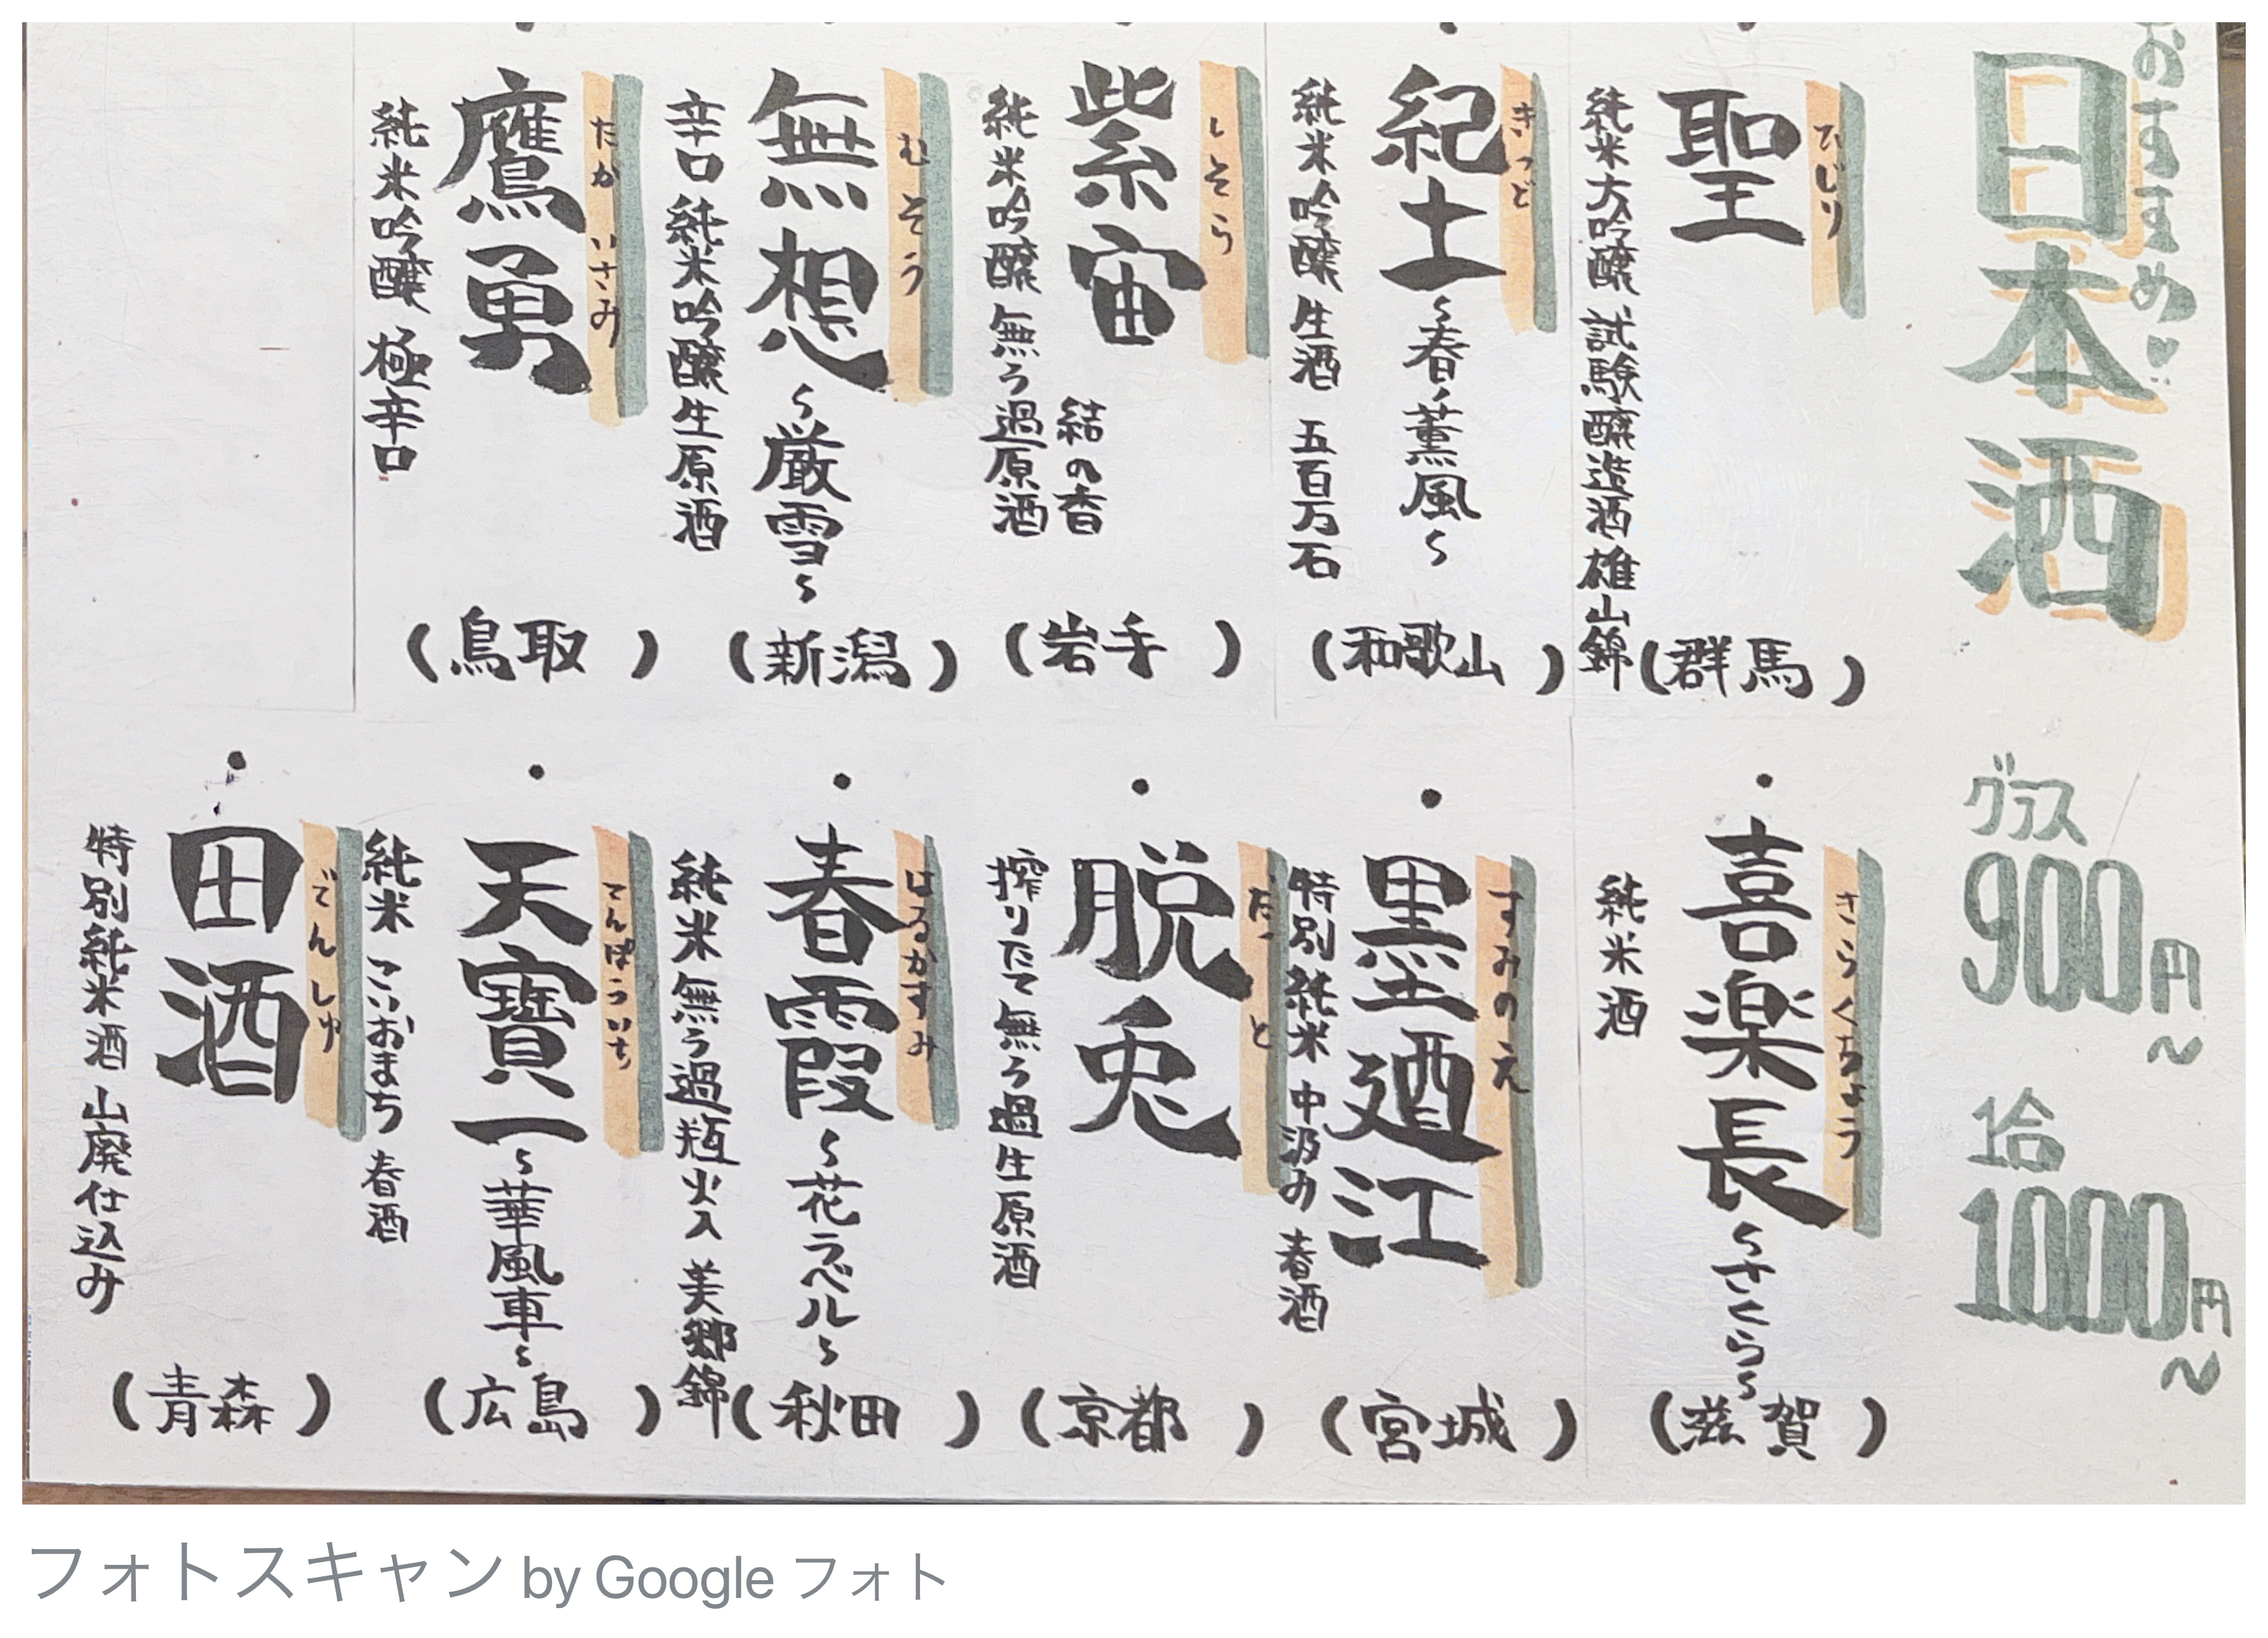 おすすめ♥
日本酒
グラス
900円~
1合
1000円~
・聖
ひじり
純米大吟醸 試験醸造酒 雄山錦
(群馬)
・紀土~春ノ薫風~
きっど
純米吟醸 生酒 五百万石
(和歌山)
・紫宙 結の香
しそら
純米吟醸 無ろ過原酒
(岩手)
・無想~厳雪~
むそう
辛口純米吟醸生原酒
(新潟)
・鷹勇
たかいさみ
純米吟醸 極辛口
(鳥取)
・喜楽長~さくら~
きらくちょう
純米酒
(滋賀)
・墨廼江
すみのえ
特別純米 中汲み 春酒
(宮城)
・脱兎
だっと
搾りたて無ろ過生原酒
(京都)
・春霞~花ラベル~
はるかすみ
純米 無ろ過瓶火入 美郷錦
(秋田)
・天寶一~華風車~
てんぽういち
純米 こいおまち 春酒
(広島)
・田酒
でんしゅ
特別純米酒 山廃仕込み
(青森)
フォトスキャン by Google フォト